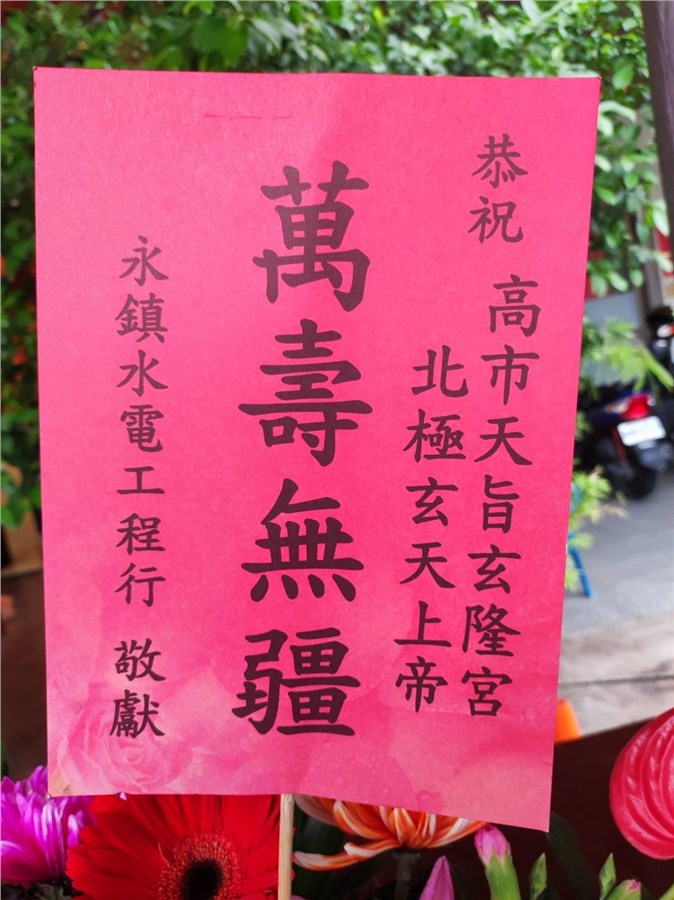 恭祝
高市天旨玄隆宮
北極玄天上帝
萬壽無疆
永鎮水電工程行 敬獻